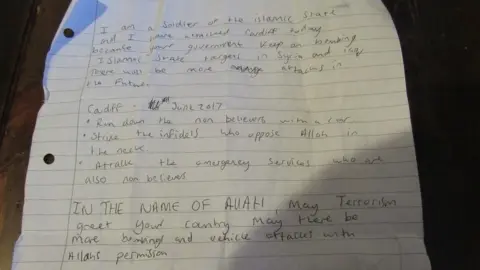 I am a Soldier of the islamic State
and I have attacked Cardiff today
because your government keep on bombing
Islamic State targets in Syria and iraq
There will be more attacks in
the Future.
Cardiff - June 2017
• Run down the non believers with a car
• Strike the infidels who oppose Allah in
the neck
• Attack the emergency Services who are
also non believers
IN THE NAME OF AllAH, May Terrorism
greet your country May there be
More bombings and vehicle attacks with
Allahs permission